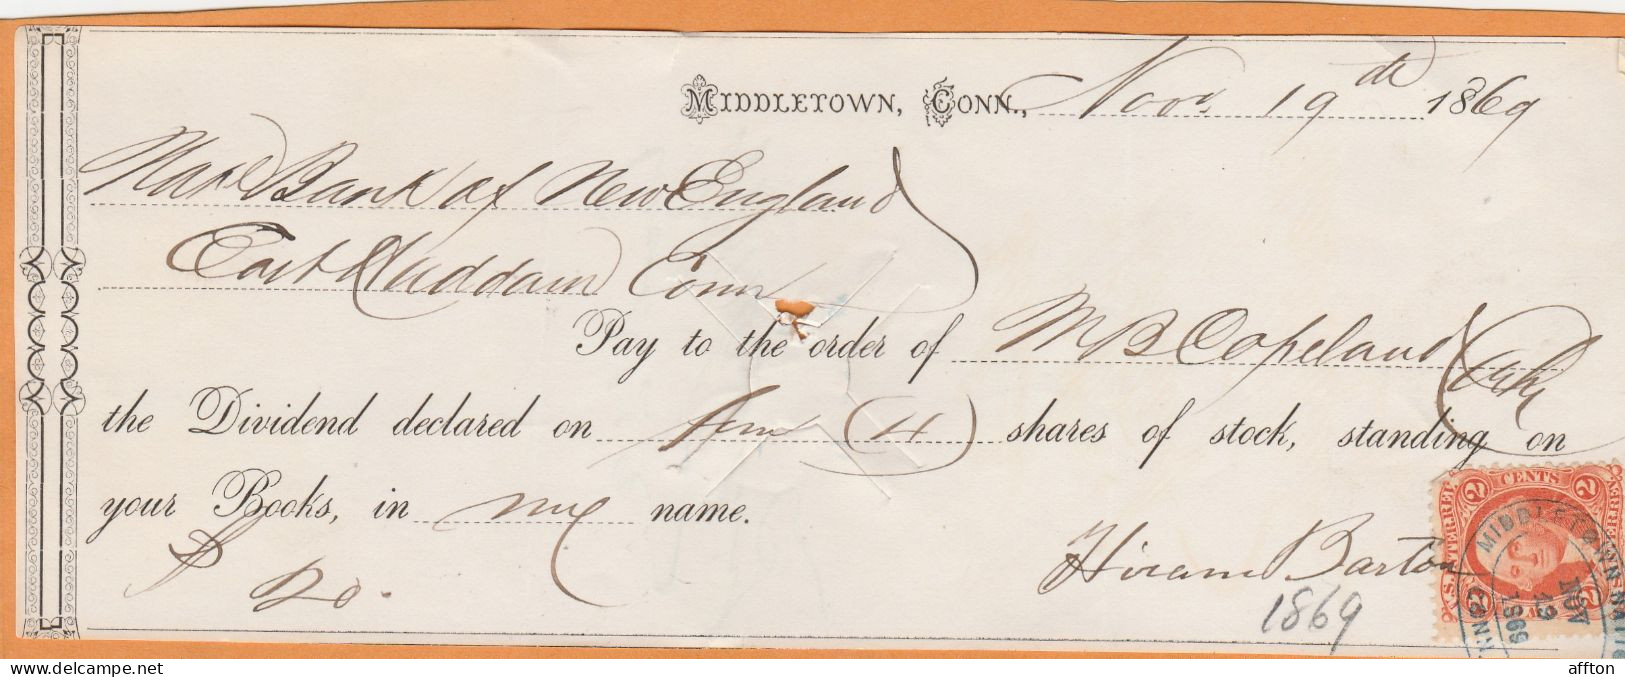 MIDDLETOWN, CONN., Nov. 19th 1869
Natl Bank of New England
East Haddam Conn
Pay to the order of M B Copeland Cash
the Dividend declared on four (4) shares of stock, standing on
your Books, in my name.
$ 20.
Hiram Barton
1869
U.S. INTER. REV.
2 CENTS 2
2
2
MIDDLETOWN
CONN.
NOV
19
1869
www.delcampe.net
affton